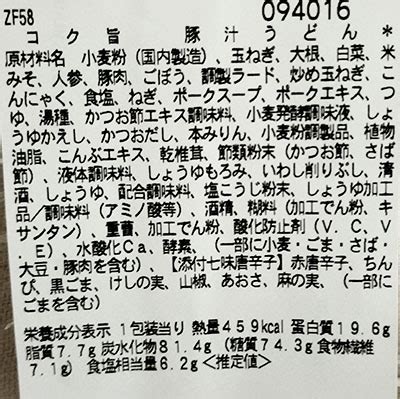 ZF58 094016
コク旨 豚汁うどん*
原材料名 小麦粉（国内製造）、玉ねぎ、大根、白菜、米
みそ、人参、豚肉、ごぼう、調製ラード、炒め玉ねぎ、こ
んにゃく、食塩、ねぎ、ポークスープ、ポークエキス、つ
ゆ、湯種、かつお節エキス調味料、小麦発酵調味液、しょ
うゆかえし、かつおだし、本みりん、小麦粉調製品、植物
油脂、こんぶエキス、乾椎茸、節類粉末（かつお節、さば
節）、液体調味料、しょうゆもろみ、いわし削りぶし、清
酒、しょうゆ、配合調味料、塩こうじ粉末、しょうゆ加工
品／調味料（アミノ酸等）、酒精、糊料（加工でん粉、キ
サンタン）、重曹、加工でん粉、酸化防止剤（V．C、V
．E）、水酸化Ca、酵素、（一部に小麦・ごま・さば・
大豆・豚肉を含む）、【添付七味唐辛子】赤唐辛子、ちん
ぴ、黒ごま、けしの実、山椒、あおさ、麻の実、（一部に
ごまを含む）
栄養成分表示 1包装当り 熱量459kcal 蛋白質19.6g
脂質7.7g 炭水化物81.4g（糖質74.3g 食物繊維
7.1g） 食塩相当量6.2g <推定値>